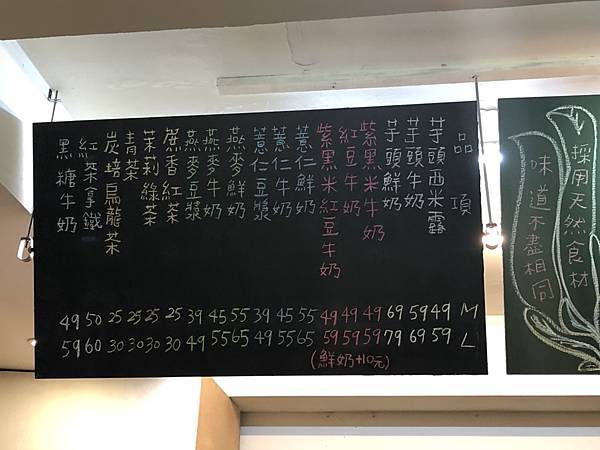 品項 M L
芋頭西米露 49 59
芋頭牛奶 59 69
芋頭鮮奶 69 79
紫黑米牛奶 49 59
紅豆牛奶 49 59
紫黑米紅豆牛奶 49 59
(鮮奶+10元)
薏仁鮮奶 55 65
薏仁牛奶 45 55
薏仁豆漿 39 49
燕麥鮮奶 55 65
燕麥牛奶 45 55
燕麥豆漿 39 49
蔗香紅茶 25 30
茉莉綠茶 25 30
青茶 25 30
炭培烏龍茶 25 30
紅茶拿鐵 50 60
黑糖牛奶 49 59
採用天然食材
味道不盡相同